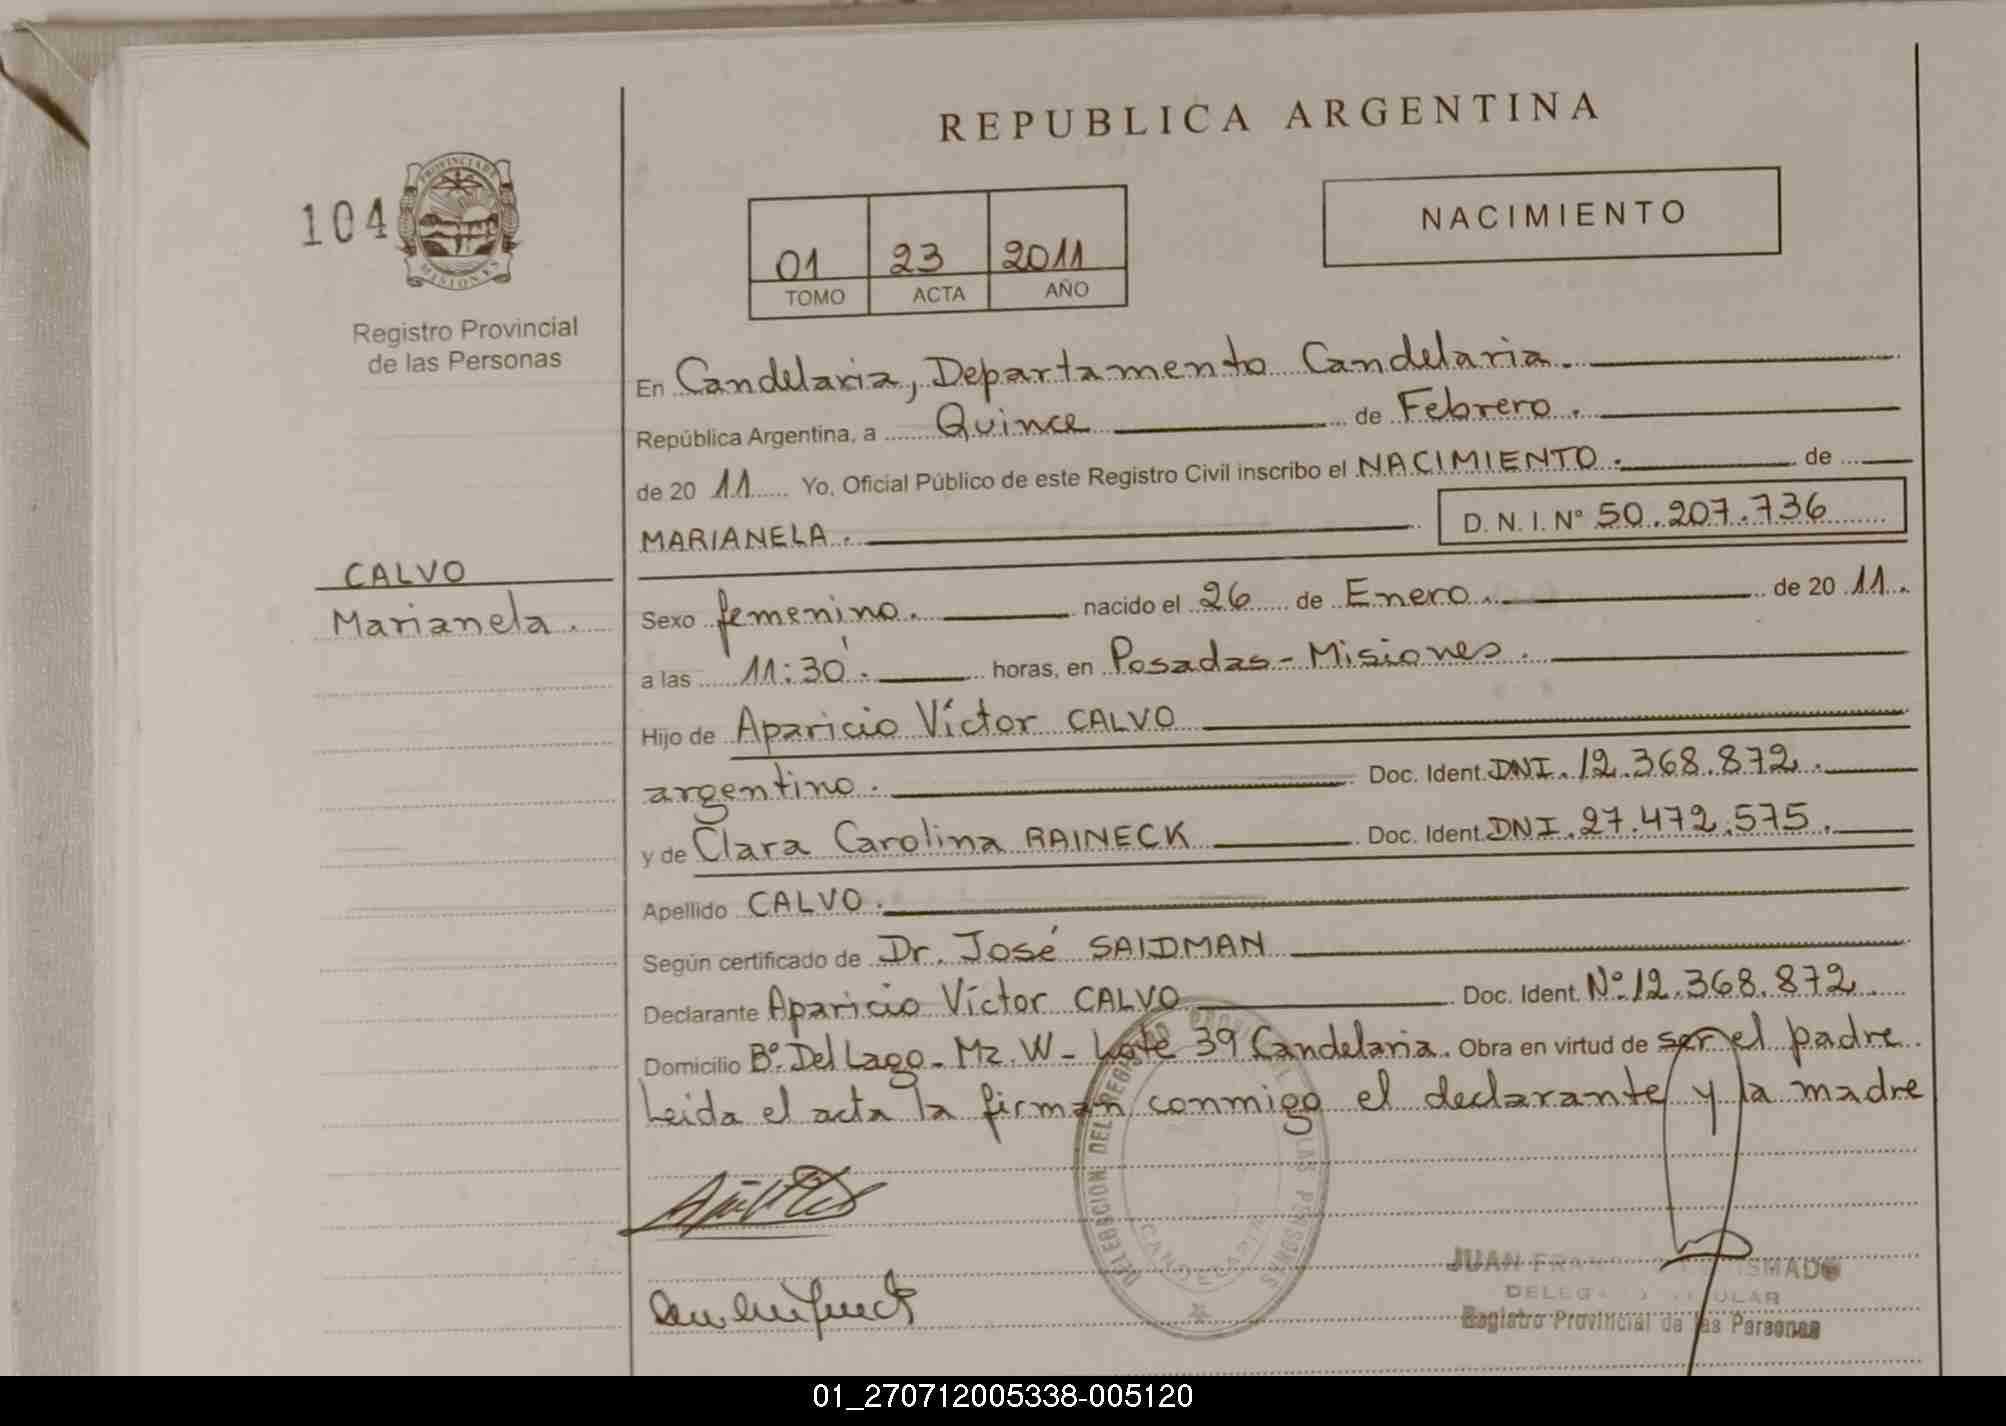 REPUBLICA ARGENTINA
104
PROVINCIA DE
MISIONES
Registro Provincial
de las Personas
01 23 2011
TOMO ACTA AÑO
NACIMIENTO
En Candelaria, Departamento Candelaria.
República Argentina, a Quince de Febrero.
de 20 11 Yo, Oficial Público de este Registro Civil inscribo el NACIMIENTO. de
MARIANELA. D. N. I. Nº 50.207.736
CALVO
Marianela.
Sexo femenino. nacido el 26 de Enero. de 20 11.
a las 11:30'. horas, en Posadas - Misiones.
Hijo de Aparicio Víctor CALVO
argentino. Doc. Ident. DNI. 12.368.872.
y de Clara Carolina RAINECK Doc. Ident. DNI. 27.472.575.
Apellido CALVO.
Según certificado de Dr. José SAIDMAN
Declarante Aparicio Víctor CALVO Doc. Ident. Nº 12.368.872.
Domicilio Bº. Del Lago - Mz. W - Lote 39 Candelaria. Obra en virtud de ser el padre.
Leida el acta la firman conmigo el declarante y la madre
DELEGACION DEL REGISTRO PROVINCIAL DE LAS PERSONAS
CANDELARIA
JUAN
DELEGADO TITULAR
Registro Provincial de las Personas
01_270712005338-005120